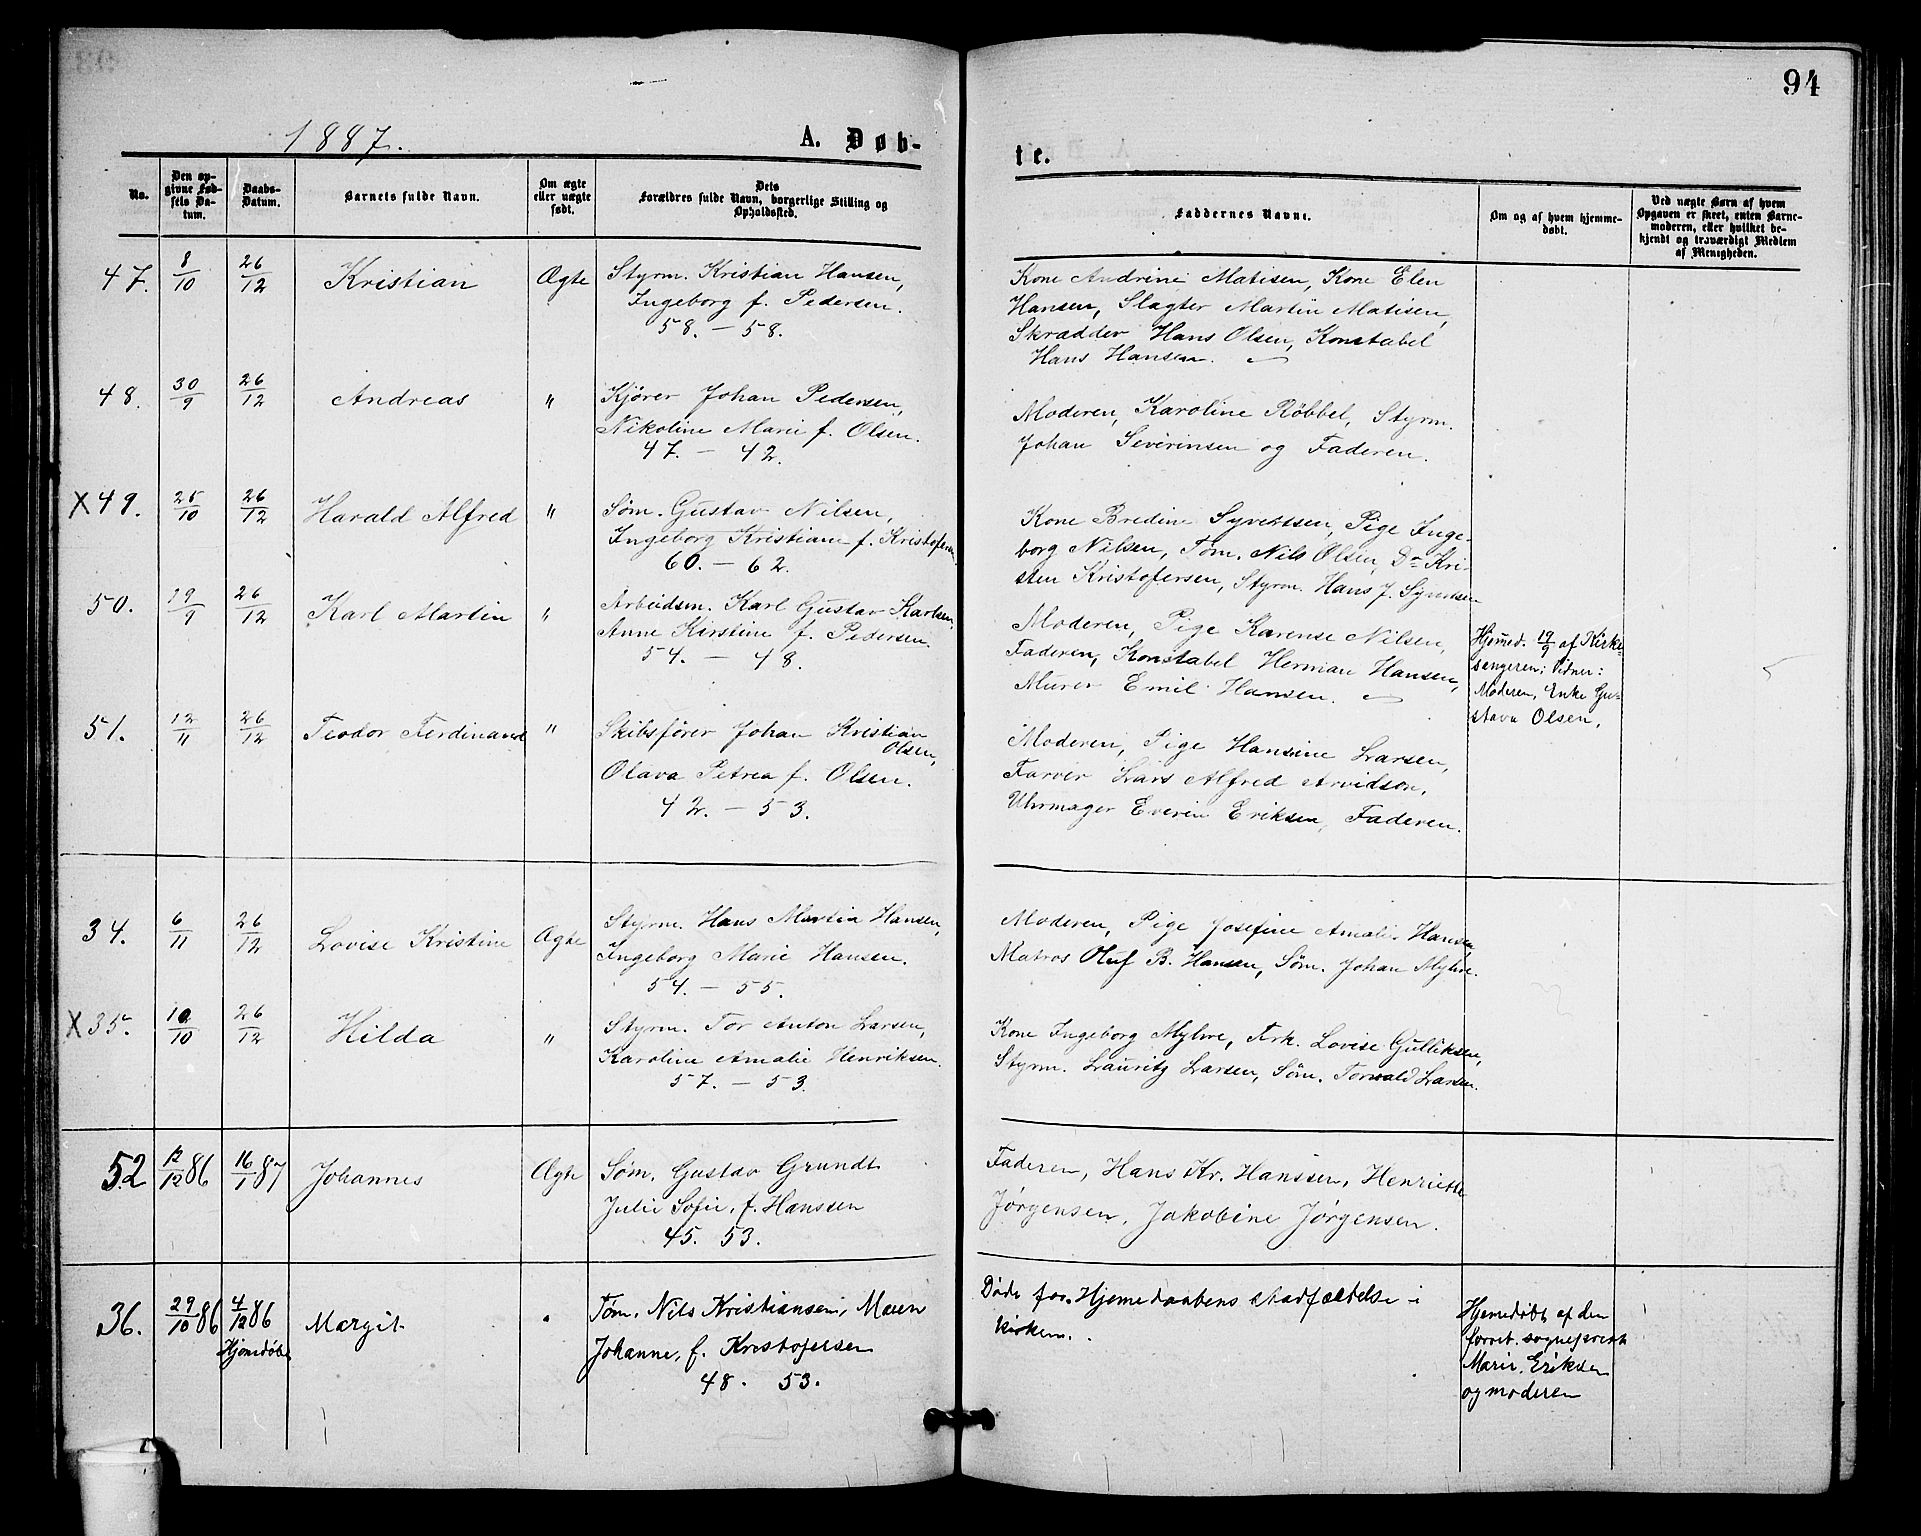 94
1887.
A. Døb-
te.
No.
Den op-
givne Fød-
sels Da-
tum.
Daabs-
Datum.
Barnets fulde Navn.
Om ægte
eller uægte
født.
Dets
Forældres fulde Navn, borgerlige Stilling og
Opholdssted.
Faddernes Navne.
Om og af hvem hjemme-
døbt.
Ved uægte Børn af hvem
Opgaven er skeet, enten Barne-
moderen, eller hvilket be-
kjendt og troværdigt Medlem
af Menigheden.
47. 8/10 26/12 Kristian Ægte Styrm. Kristian Hansen,
Ingeborg f. Pedersen.
58. – 58.
Kone Andrine Matisen, Kone Elen
Hansen, Slagter Martin Matisen,
Skrædder Hans Olsen, Konstabel
Hans Hansen.
48. 30/9 26/12 Andreas " Kjører Johan Pedersen,
Nikoline Marie f. Olsen.
47. – 42.
Moderen, Karoline Röbbel, Styrm.
Johan Severinsen og Faderen.
X 49. 25/10 26/12 Harald Alfred " Søm. Gustav Nilsen,
Ingeborg Kristiane f. Kristofersen
60. – 62.
Kone Bredine Syvertsen, Pige Inge-
borg Nilsen, Tøm. Nils Olsen, Do Kri-
sten Kristofersen, Styrm. Hans J. Syvertsen
50. 19/9 26/12 Karl Martin " Arbeidsm. Karl Gustav Karlsen,
Anne Kirstine f. Pedersen.
54. – 48.
Moderen, Pige Karense Nilsen,
Faderen, Konstabel Herman Hansen,
Murer Emil Hansen.
Hjemmed. 19/9 af Kirke-
sangeren; Vidner:
Moderen, Enke Gu-
stava Olsen.
51. 12/11 26/12 Teodor Ferdinand " Skibsfører Johan Kristian
Olsen,
Olava Petrea f. Olsen.
42. – 53.
Moderen, Pige Hansine Larsen,
Farver Lars Alfred Arvidson,
Uhrmager Everin Eriksen, Faderen.
34. 6/11 26/12 Lovise Kristine Ægte Styrm. Hans Martin Hansen,
Ingeborg Marie Hansen.
54. – 55.
Moderen, Pige Josefine Amalie Hansen,
Matros Oluf B. Hansen, Søm. Johan Myhre.
X 35. 10/10 26/12 Hilda " Styrm. Tor Anton Larsen,
Karoline Amalie Henriksen.
57. – 53.
Kone Ingeborg Myhre, Frk. Lovise Gulliksen,
Styrm. Lauritz Larsen, Søm. Torvald Larsen.
52 12/12 86 16/1 87 Johannes Ægte Søm. Gustav Grundt
Julie Sofie, f. Hanssen
45. 53.
Faderen, Hans Kr. Hanssen, Henriette
Jørgensen, Jakobine Jørgensen.
36. 29/10 86 4/12 86 Margit " Tøm. Nils Kristiansen, Maren
Hjemdøbt
Johanne, f. Kristofersen
48. 53.
Døde før Hjemedaabens stadfæstelse i
kirken.
Hjemedøbt af den
forret. sognepræst
Marie Eriksen
og moderen